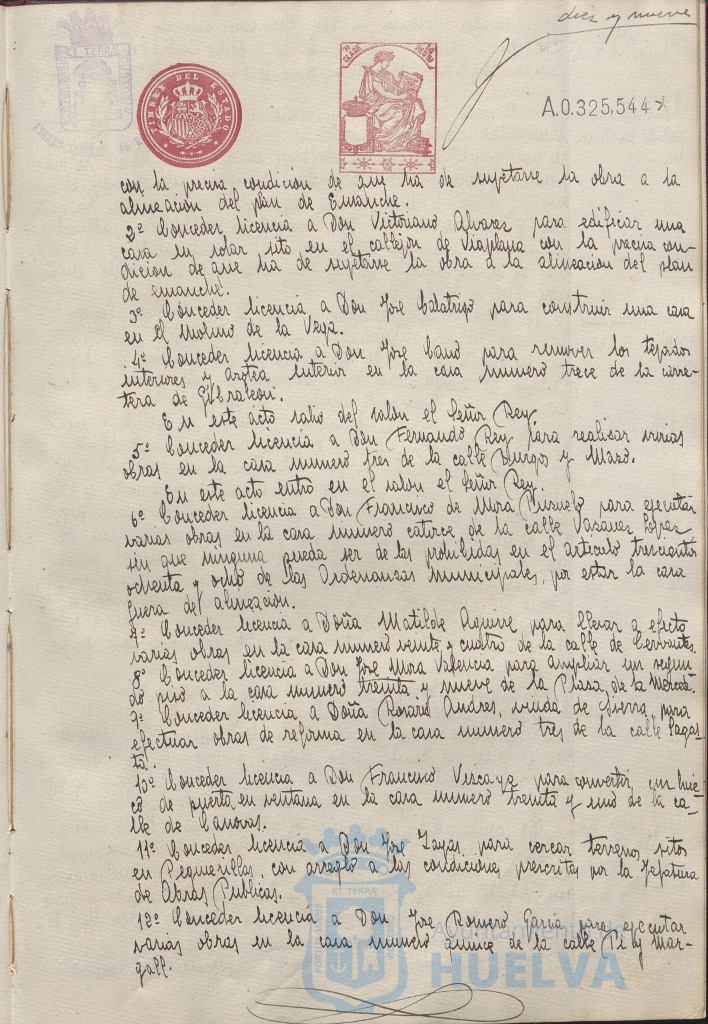 diez y nueve
TIMBRE DEL ESTADO
A.0.325,544
con la precisa condición de que ha de sujetarse la obra a la
alineación del plan de Ensanche.
2º Conceder licencia a Don Victoriano Alvarez para edificar una
casa en solar sito en el callejon de Viaplana con la precisa con-
dicion de que ha de sujetarse la obra a la alineacion del plan
de ensanche.
3º Conceder licencia a Don José Calatrigo para construir una casa
en el Molino de la Vega.
4º Conceder licencia a Don José Cano para remover los tejados
interiores y azotea interior en la casa numero trece de la carre-
tera de Gibraleon.
En este acto salio del salon el Señor Rey.
5º Conceder licencia a Don Fernando Rey para realizar varias
obras en la casa numero tres de la calle Burgos y Mazo.
En este acto entro en el salon el Señor Rey.
6º Conceder licencia a Don Francisco de Mora para ejecutar
varias obras en la casa numero catorce de la calle Vazquez Lopez
sin que ninguna pueda ser de las prohibidas en el articulo trescientos
ochenta y ocho de las Ordenanzas municipales, por estar la casa
fuera de alineacion.
7º Conceder licencia a Doña Matilde Aguirre para llevar a efecto
varias obras en la casa numero veinte y cuatro de la calle de Cervantes.
8º Conceder licencia a Don José Mora Valencia para ampliar un segun-
do piso a la casa numero treinta y nueve de la Plaza de la Merced.
9º Conceder licencia a Doña Rosario Andres, viuda de Sierra, para
efectuar obras de reforma en la casa numero tres de la calle Sagas-
ta.
10º Conceder licencia a Don Francisco Viscaya para convertir un hue-
co de puerta en ventana en la casa numero treinta y uno de la ca-
lle de Canovas.
11º Conceder licencia a Don José para cercar terrenos sitos
en Peguerillas, con arreglo a las condiciones prescritas por la Jefatura
de Obras Publicas.
12º Conceder licencia a Don José Romero Garcia para ejecutar
varias obras en la casa numero quince de la calle Pi y Mar-
gall.
Ayuntamiento de
HUELVA